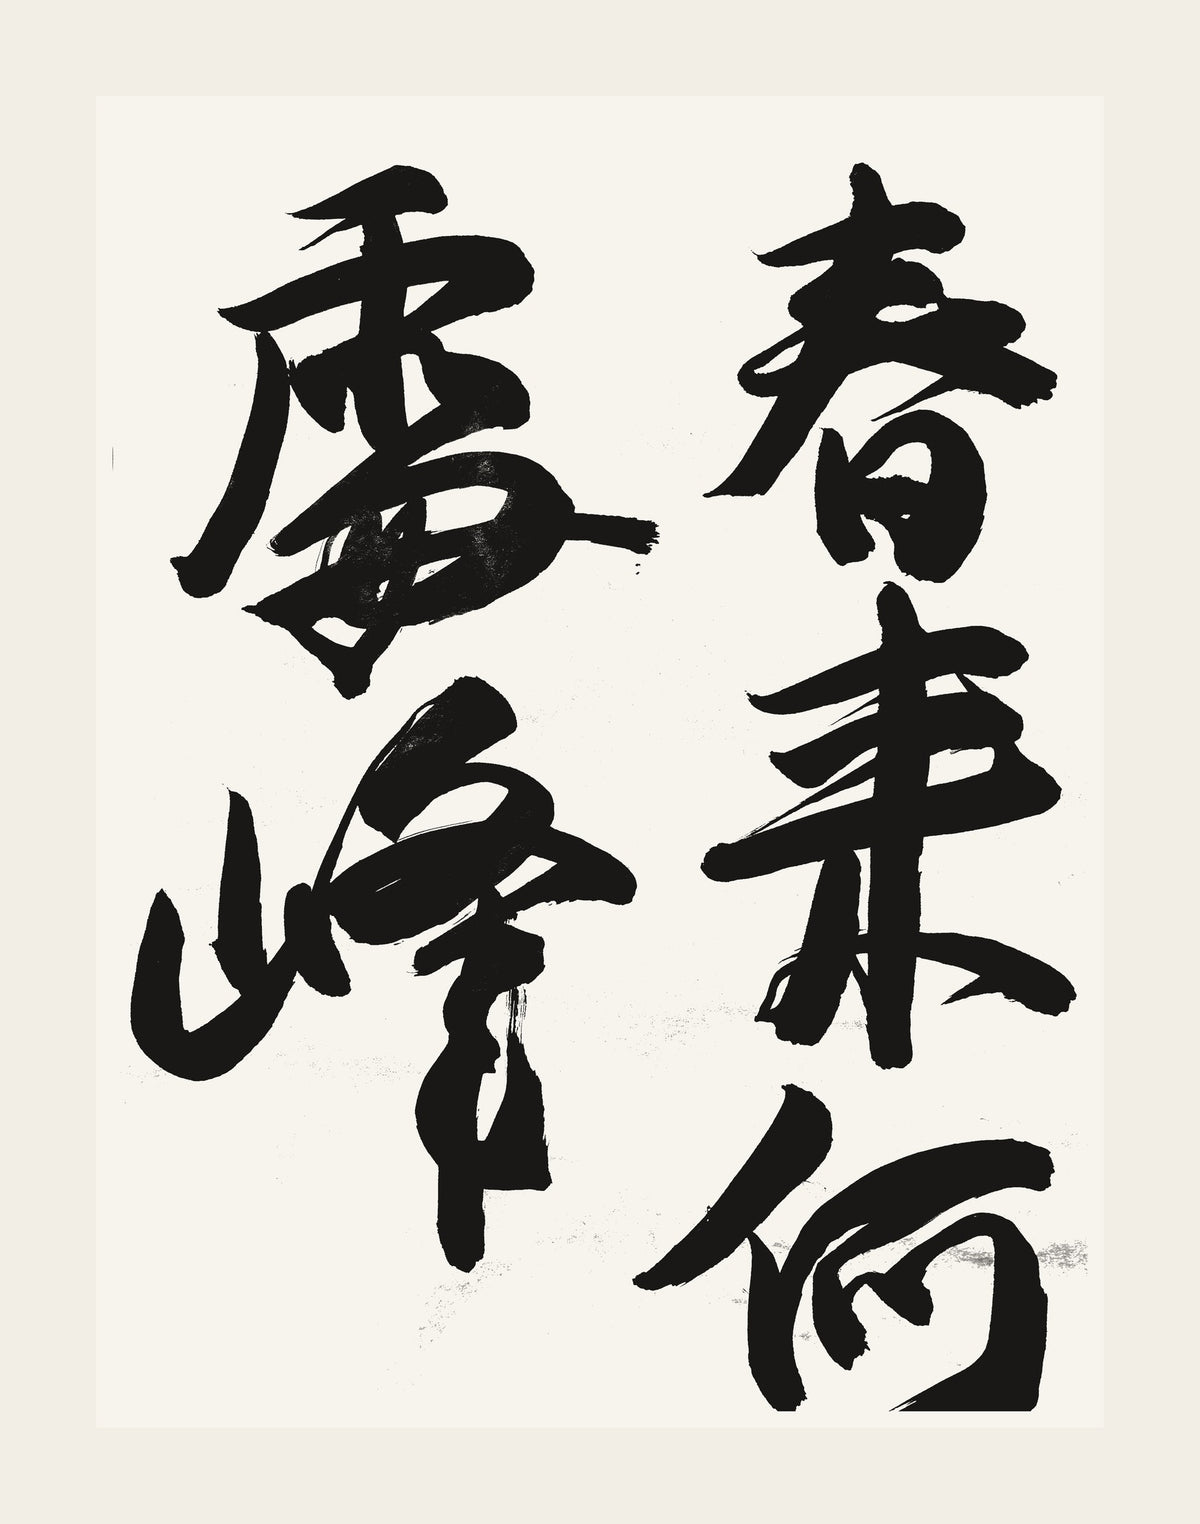 春来何
處峰